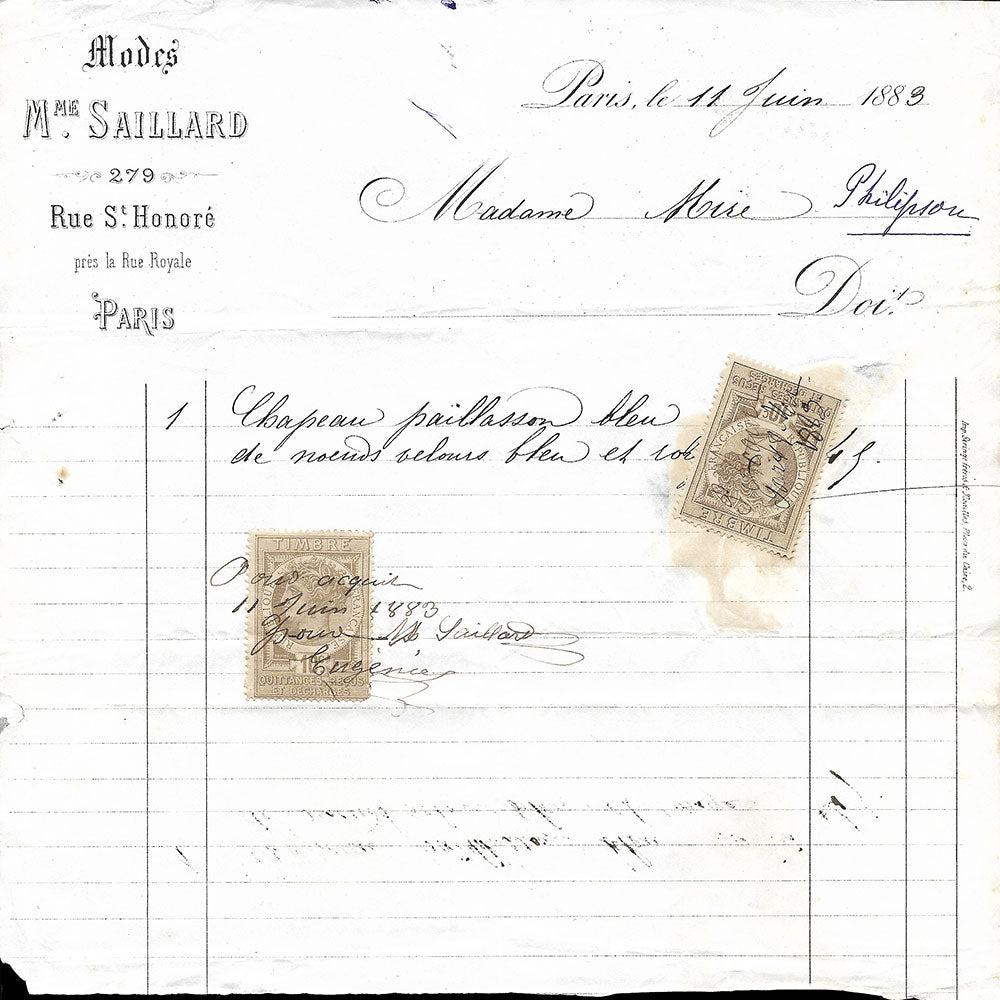 Modes
Mme. SAILLARD
279
Rue St. Honoré
près la Rue Royale
PARIS
Paris, le 11 Juin 1883
Madame Mise Philipson
Doit
1 Chapeau paillasson bleu
de noeuds velours bleu et 45.
TIMBRE
RÉPUBLIQUE FRANÇAISE
QUITTANCES REÇUS
ET DÉCHARGES
TIMBRE
RÉPUBLIQUE FRANÇAISE
10
QUITTANCES REÇUS
ET DÉCHARGES
Pour acquit
11 Juin 1883
pour Me Saillard
Eugénie
Place du Caire, 2.